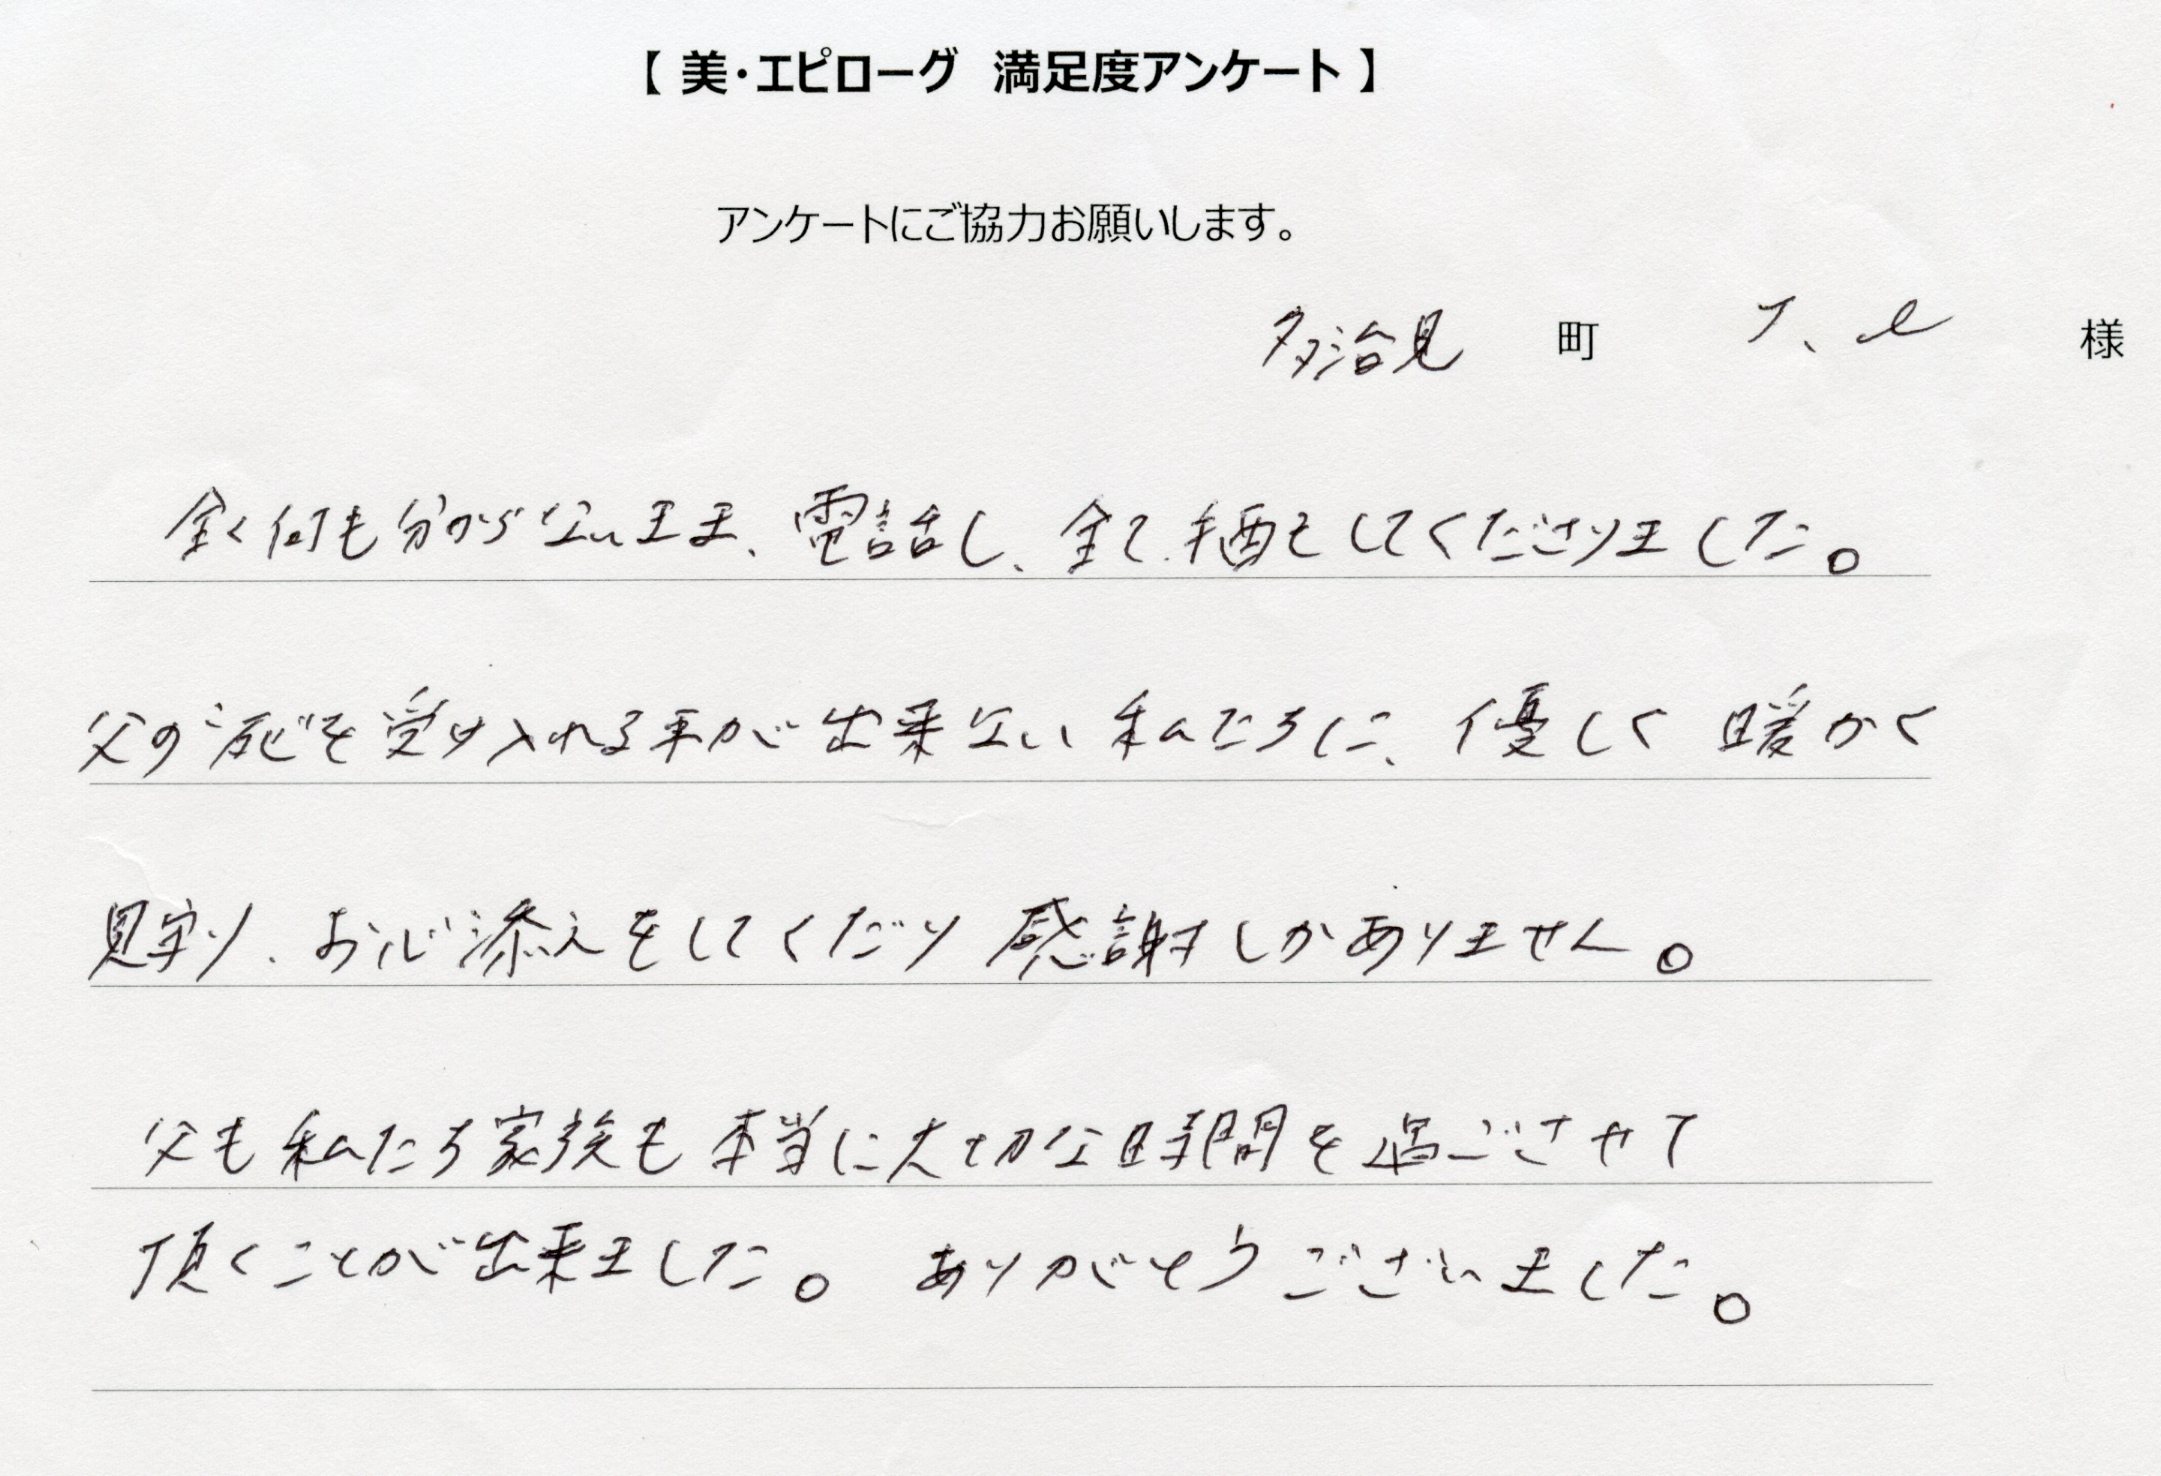 【 美・エピローグ 満足度アンケート 】
アンケートにご協力お願いします。
多治見 町 T、 様
全く何も分からないまま、電話し、全て、してくださりました。
父の死を受け入れる事が出来ない私たちに、優しく暖かく
見守り、お心添えをしてくだり感謝しかありません。
父も私たち家族も本当に大切な時間を過ごさせて
頂くことが出来ました。ありがとうございました。